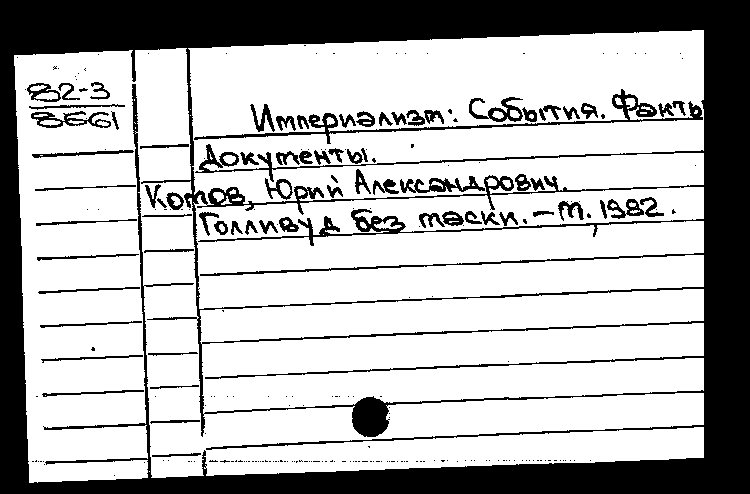 82-3
8661
Империализм: События. Факты
Документы.
Комов, Юрий Александрович.
Голливуд без маски. – М., 1982.